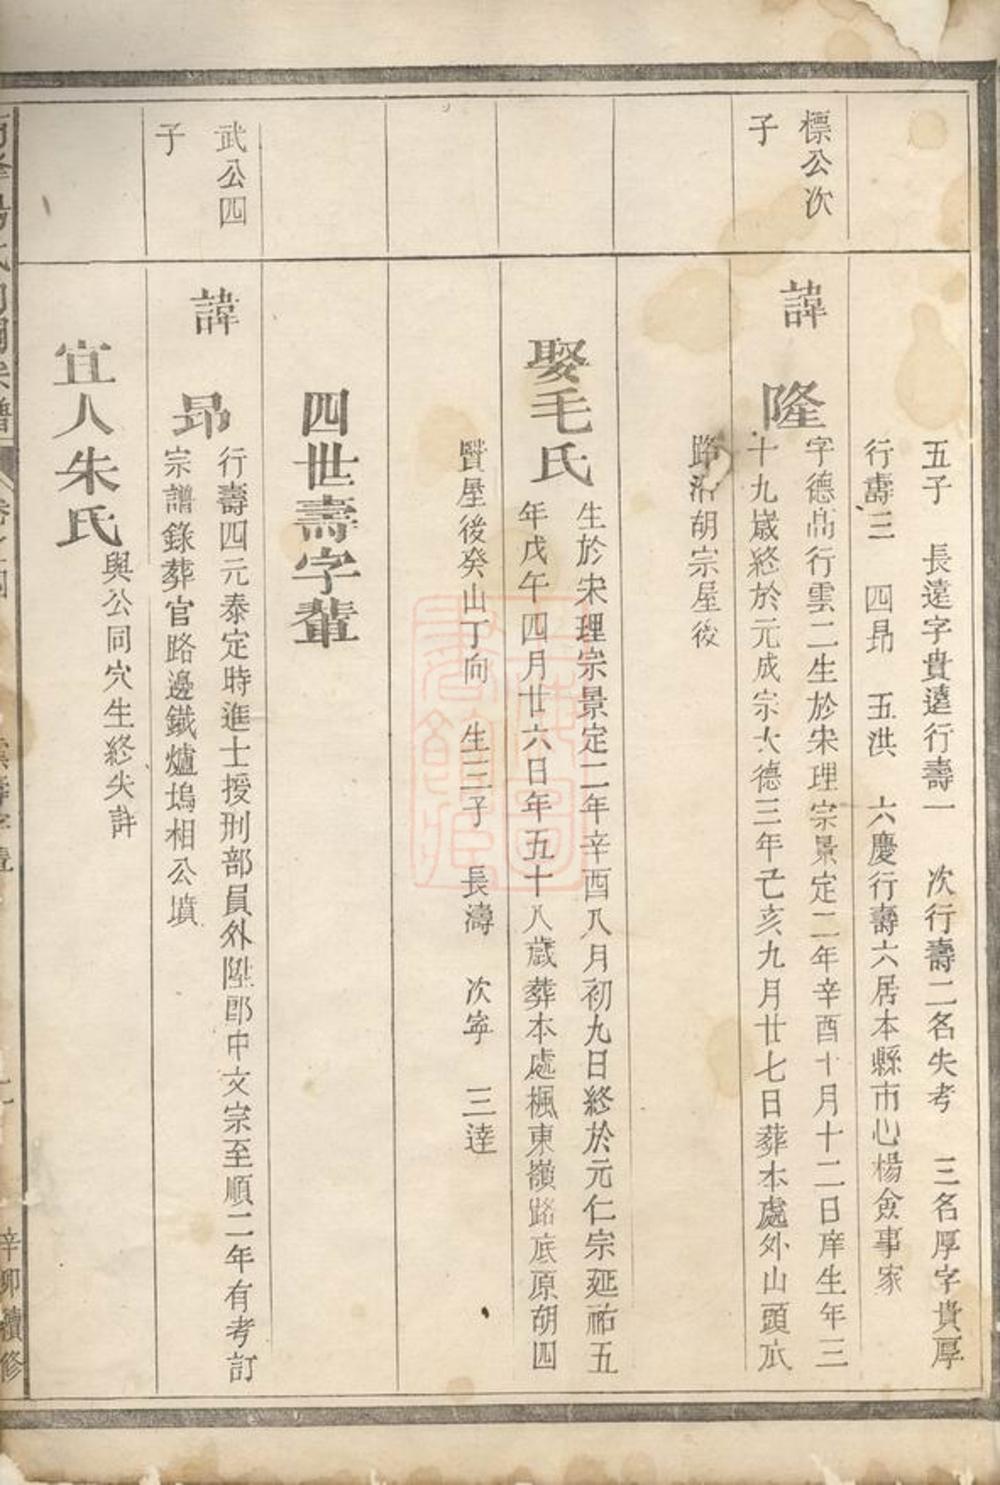 五子　長遠字貴遠行壽一　次行壽二名失考　三名厚字貴厚
行壽三　四昂　五洪　六慶行壽六居本縣市心楊僉事家
標公次
子
諱隆
字德高行雲二生於宋理宗景定二年辛酉十月十二日庠生年三
十九嵗終於元成宗大德三年己亥九月廿七日葬本處外山頭瓜
路沿胡宗屋後
娶毛氏
生於宋理宗景定二年辛酉八月初九日終於元仁宗延祐五
年戊午四月廿六日年五十八歲葬本處楓東嶺路底原胡四
賢屋後癸山丁向　生三子　長濤　次寧　三達
四世壽字輩
武公四
子
諱昂
行壽四元泰定時進士授刑部員外陞郎中文宗至順二年有考訂
宗譜錄葬官路邊鐵爐塢相公墳
宜人朱氏
與公同穴生終失詳
辛卯續修